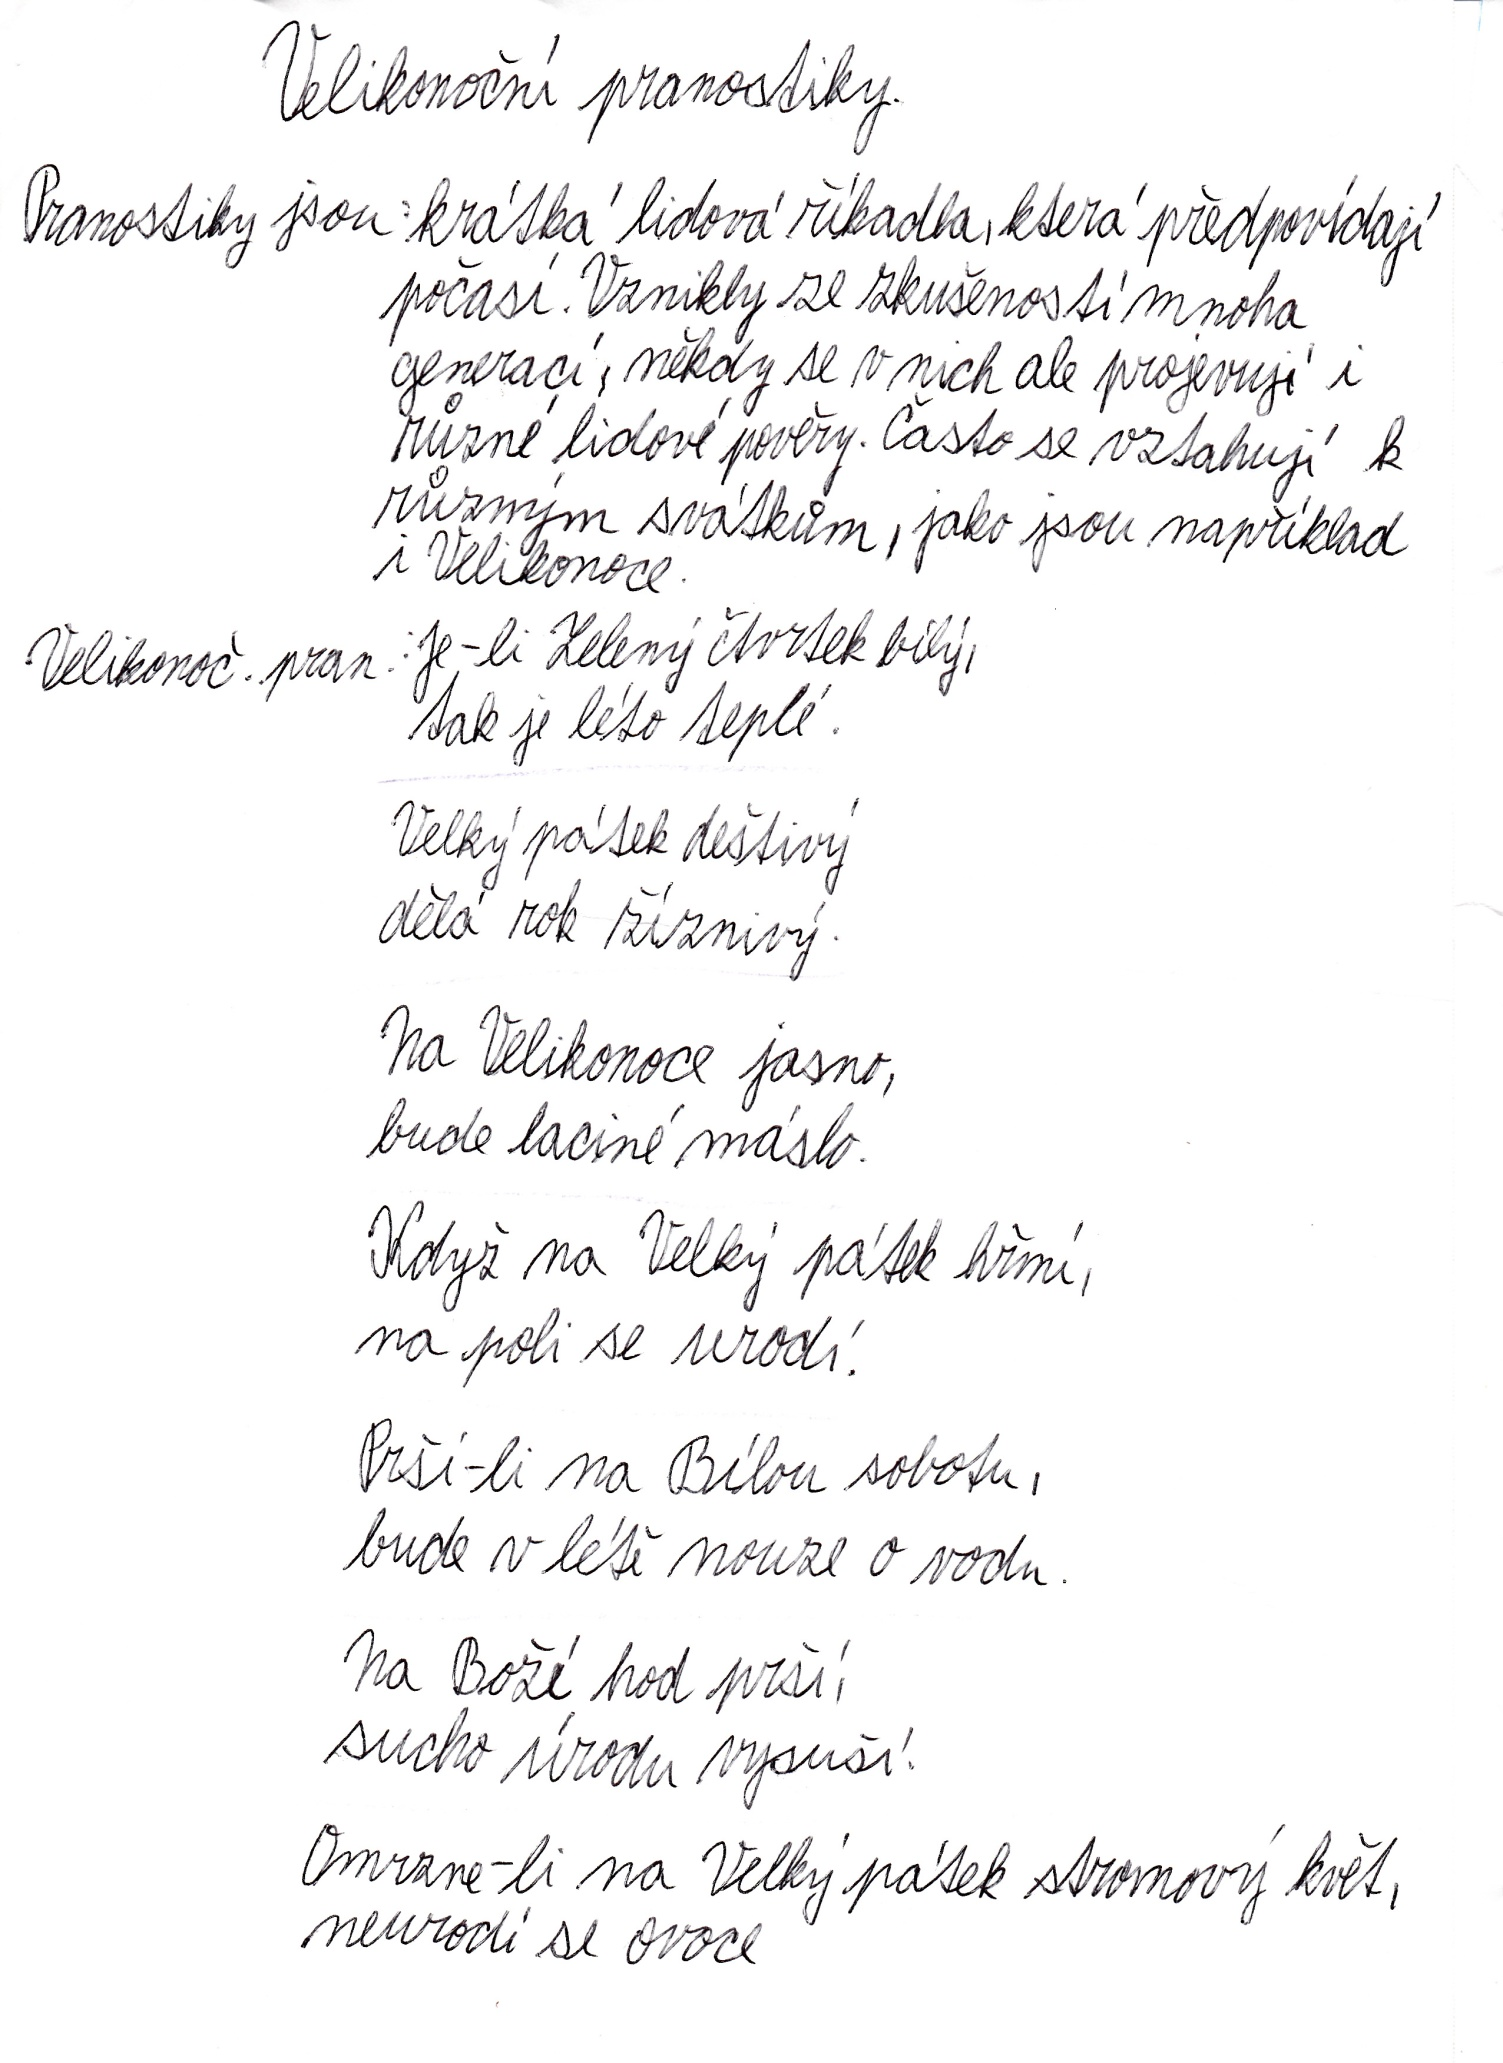 Velikonoční pranostiky.
Pranostiky jsou: krátká lidová říkadla, která předpovídají
počasí. Vznikly ze zkušeností mnoha
generací, někdy se v nich ale projevují i
různé lidové pověry. Často se vztahují k
různým svátkům, jako jsou například
i Velikonoce.
Velikonoč. pran.: Je-li Zelený čtvrtek bílý,
tak je léto teplé.
Velký pátek deštivý
dělá rok žíznivý.
Na Velikonoce jasno,
bude laciné máslo.
Když na Velký pátek hřmí,
na poli se urodí.
Prší-li na Bílou sobotu,
bude v létě nouze o vodu.
Na Boží hod prší,
sucho úrodu vysuší.
Omrzne-li na Velký pátek stromový květ,
neurodí se ovoce